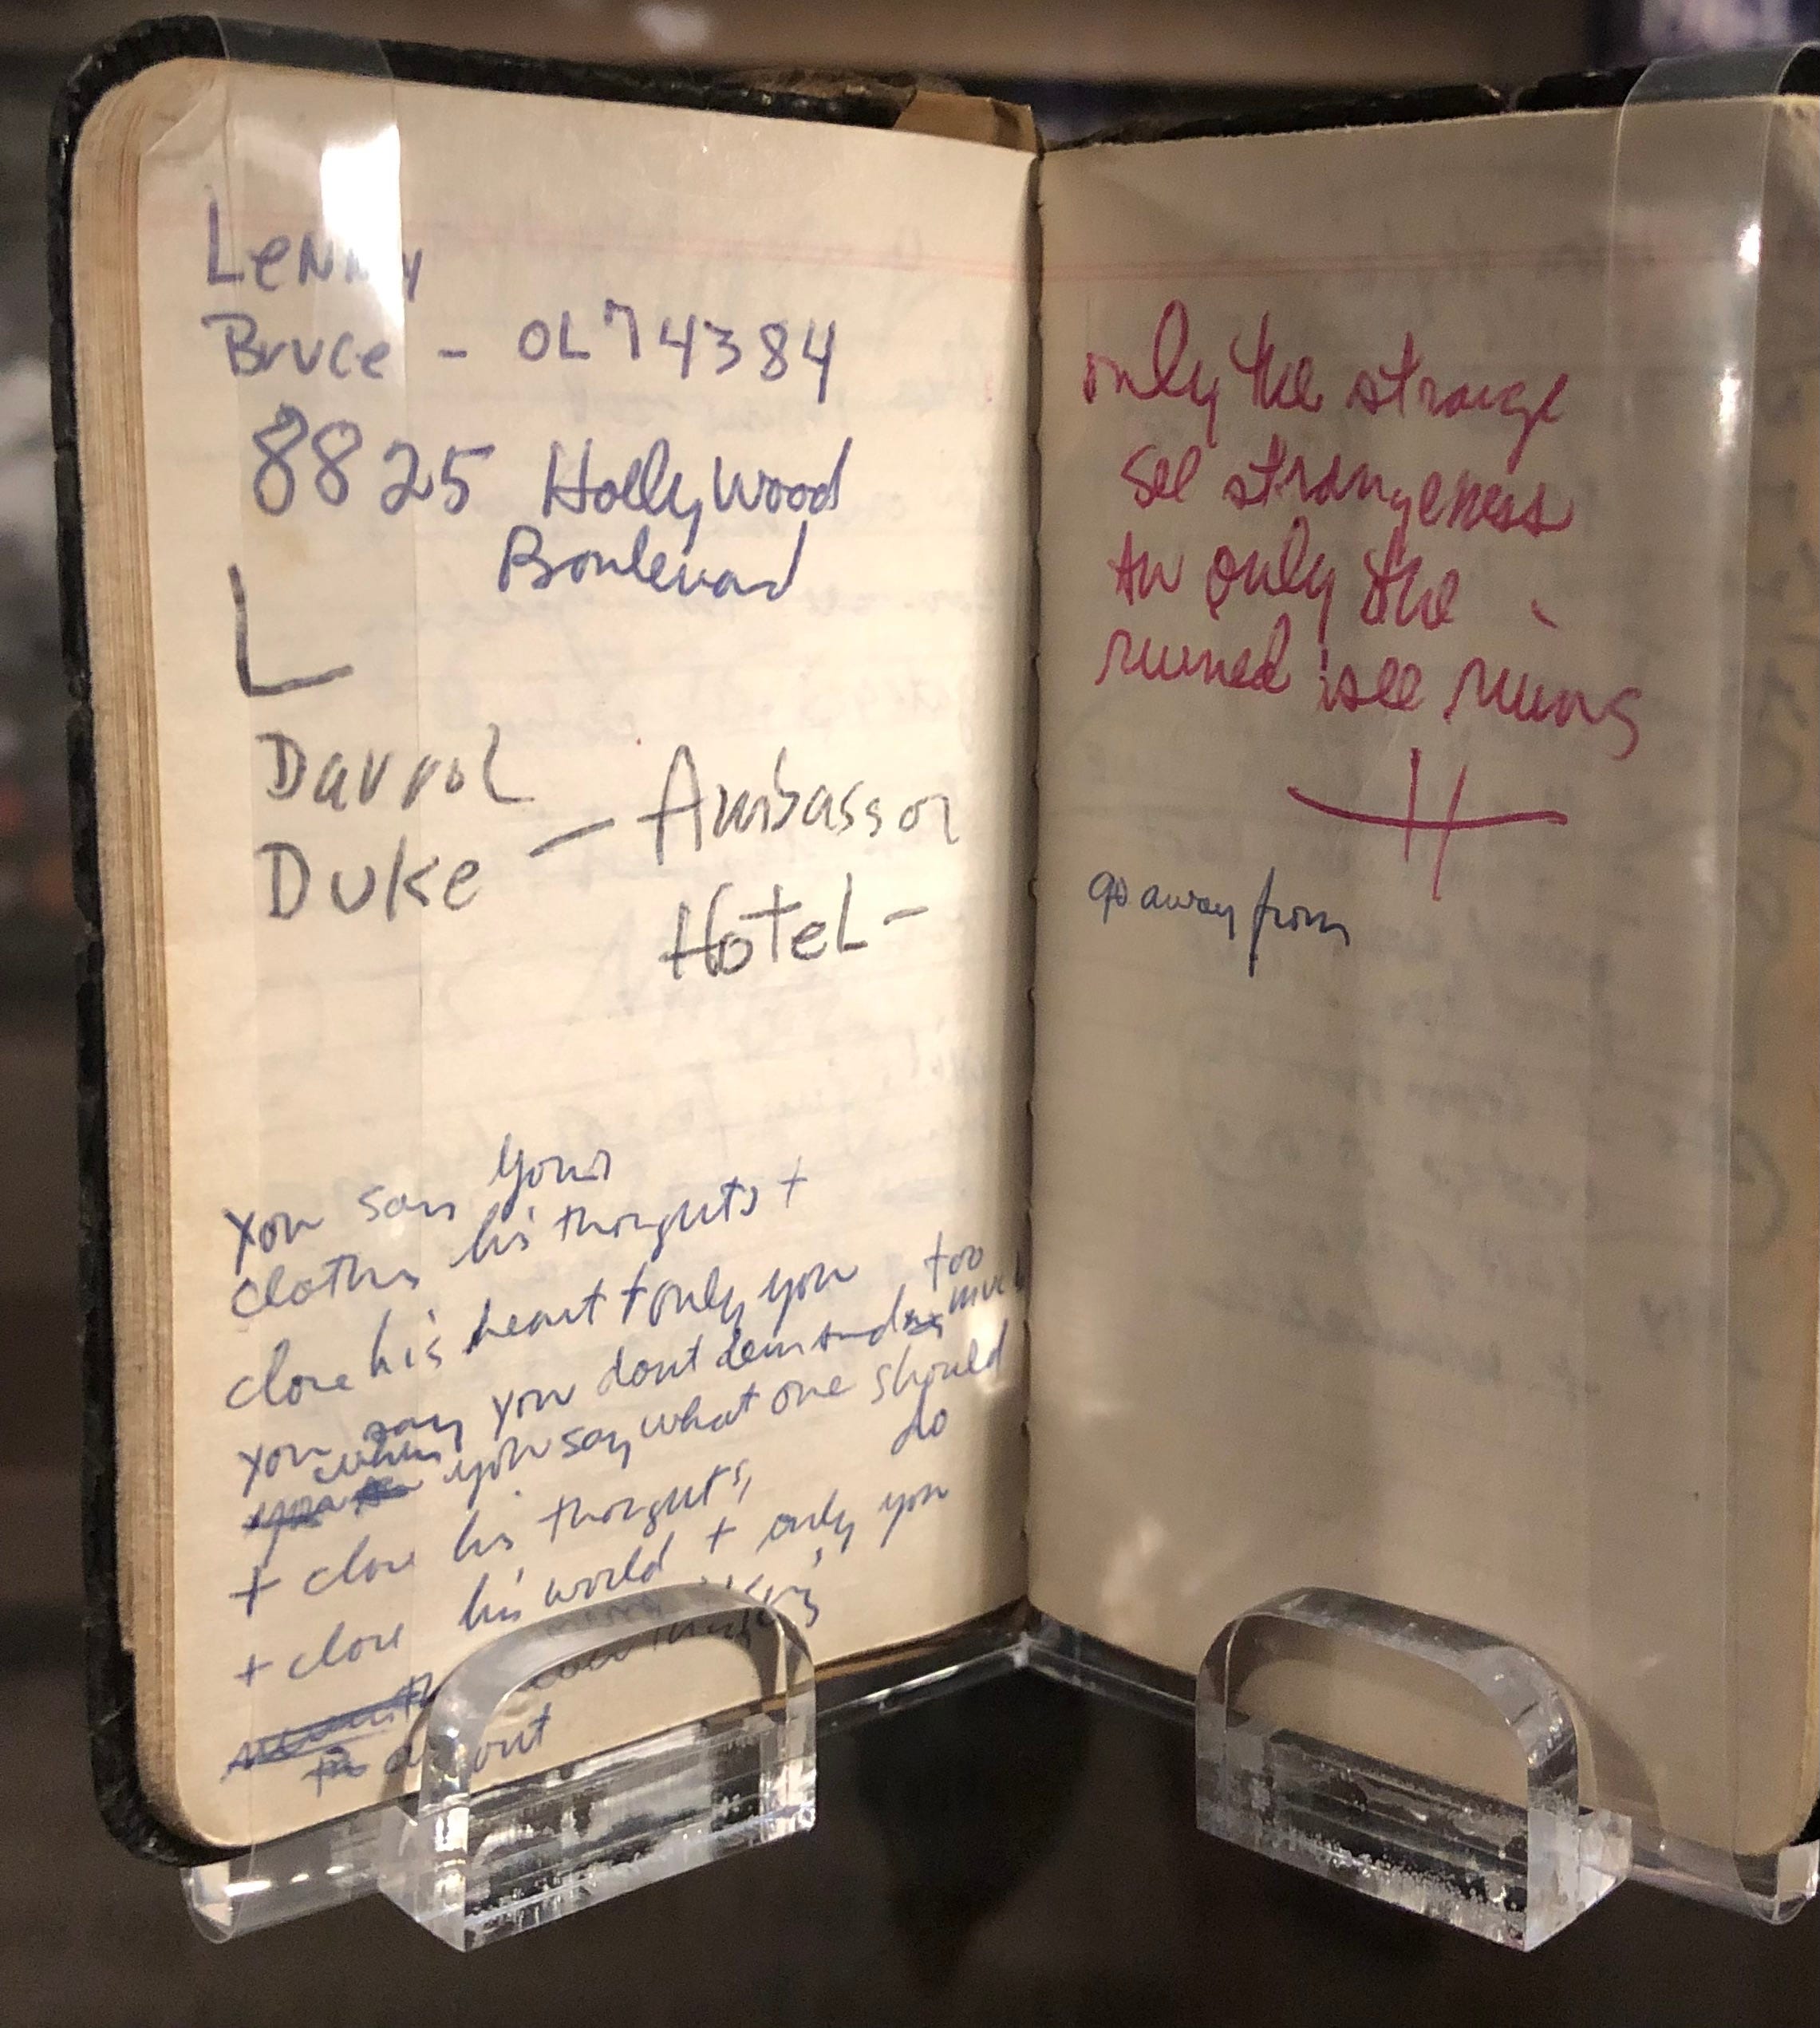 Lenny
Bruce - OL74384
8825 Hollywood
Boulevard
L
Darrol
Duke - Ambassor
Hotel-
your
You say
his thoughts +
close his heart + only you too
you say you dont demand much
when you say what one should
do
+ close his thoughts,
+ close his world + only you
out
only the strange
see strangeness
an only the
ruined see ruins
go away from